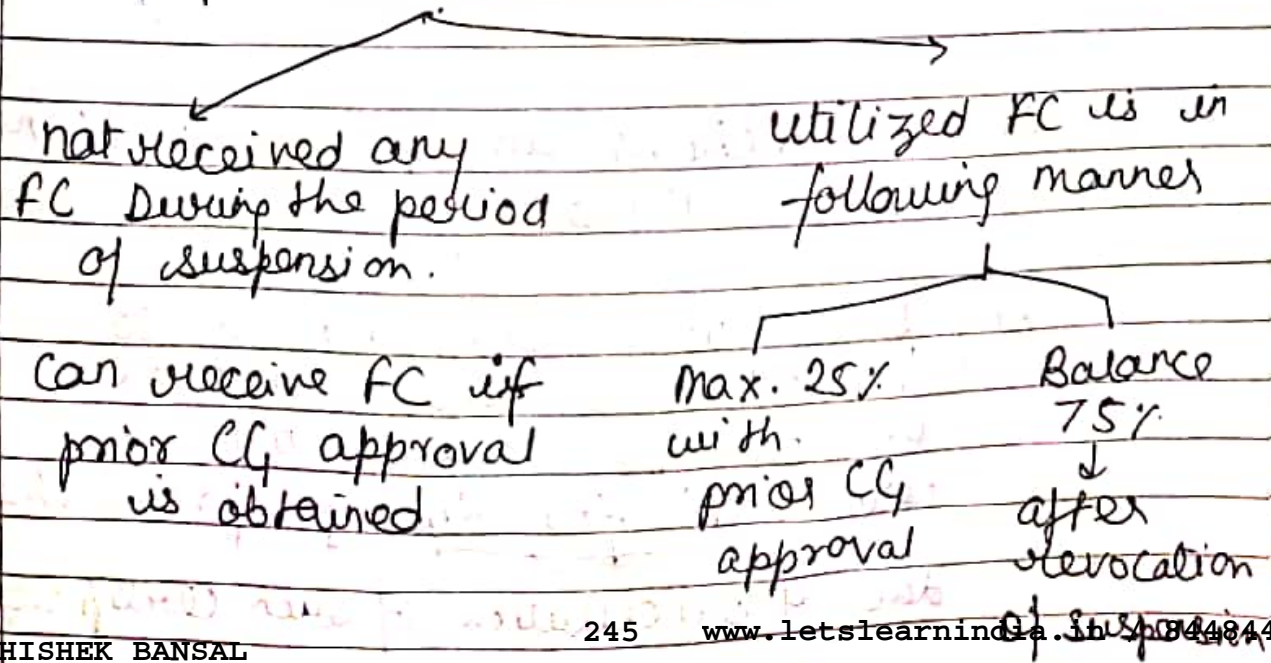 not received any
FC During the period
of suspension.
can receive FC if
prior CG approval
is obtained
utilized FC is in
following manner
Max. 25%
with.
prior CG
approval
Balance
75%
after
revocation
of suspension
HISHEK BANSAL
245
www.letslearnindia.in / 844844